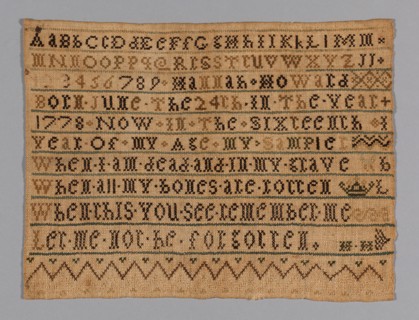 AaBbCcDdEeFfGgHhIiKkLlMm
NnOoPpQqRrSsTtUVWXYZ
123456789 Hannah Howard
Born June The 24th in The Year
1778 Now in The Sixteenth
Year Of my Age my Sampler
When I am dead and in my grave
When all my bones are rotten
When this you see remember me
Let me not be forgotten. H H